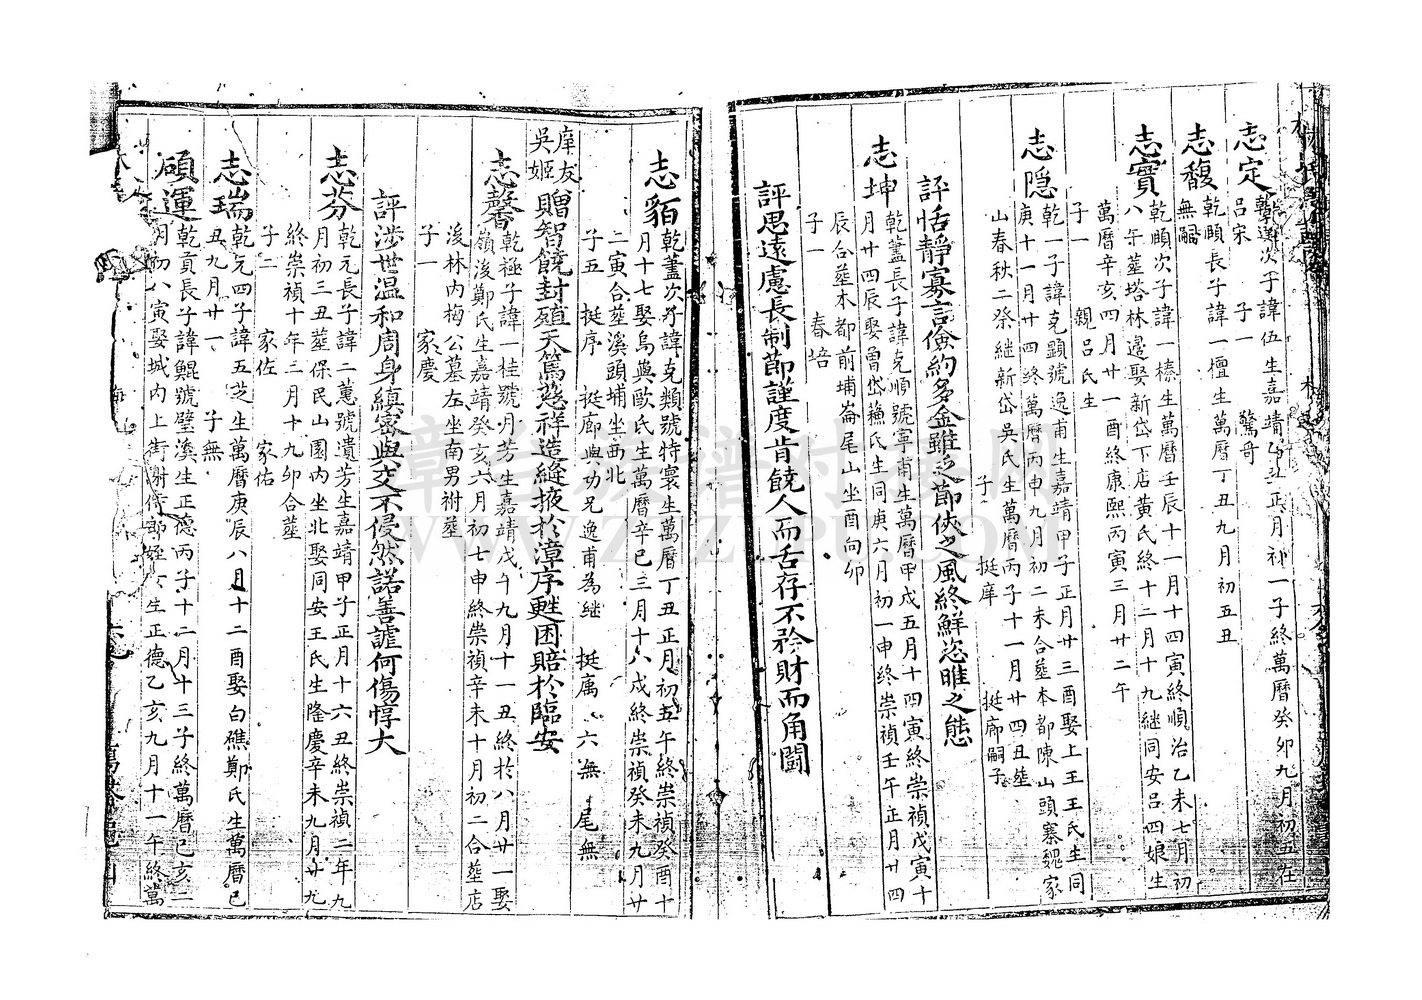 志定
乾遂次子諱伍生嘉靖乙丑正月初一子終萬曆癸卯九月初五在
呂宋 子一 驚哥
志馥
乾頤長子諱一檀生萬曆丁丑九月初五丑
無嗣
志實
乾頤次子諱一榛生萬曆壬辰十一月十四寅終順治乙未七月初
八午塟塔林邊娶新岱下店黃氏終十二月十九継同安呂四娘生
萬曆辛亥四月廿一酉終康熙丙寅三月廿二午
子一 親呂氏生
志隱
乾一子諱克顕號逸甫生嘉靖甲子正月廿三酉娶上王王氏生同
庚十一月廿四終萬曆丙申九月初二未合塟本都陳山頭寨魏家
山春秋二祭継新岱吳氏生萬曆丙子十一月廿四丑塟
子二 挺庠 挺廊嗣子
評恬靜寡言儉約多金雖乏節俠之風終鮮恣睢之態
志坤
乾蓋長子諱克順號寧甫生萬曆甲戌五月十四寅終崇禎戊寅十
月廿四辰娶曽岱蘓氏生同庚六月初一申終崇禎壬午正月廿四
辰合塟本都前埔崙尾山坐酉向卯
子一 春培
評思遠慮長制節謹度肯饒人而舌存不矜財而角鬪
志貊
乾蓋次子諱克類號特寰生萬曆丁丑正月初五午終崇禎癸酉十
月十七娶烏與歐氏生萬曆辛巳三月十八戌終崇禎癸未九月廿
二寅合塟溪頭埔坐西北
子五 挺序 挺廊與功兄逸甫為継 挺庽 六無 尾無
庠友
吳姬 贈智饒封殖天篤慈祥造縫掖於漳序甦困賠於臨安
志馨
乾極子諱一桂號月芳生嘉靖戊午九月十一丑終於八月廿一娶
嶺浚鄭氏生嘉靖癸亥六月初七申終崇禎辛未十月初二合塟店
浚林内梅公墓左坐南男祔塟
子一 家慶
評涉世温和周身縝密與交不侵然諾善謔何傷惇大
志芬
乾元長子諱二蕙號遺芳生嘉靖甲子正月十六丑終崇禎二年九
月初三丑塟保民山園内坐北娶同安王氏生隆慶辛未九月廿九
終崇禎十年三月十九卯合塟
子二 家佐 家佑
志瑞
乾元四子諱五芝生萬曆庚辰八月十二酉娶白礁鄭氏生萬曆己
丑九月廿一 子無
碩運
乾貢長子諱鯤號壁溪生正德丙子十二月十三子終萬曆己亥二
月初八寅娶城内上街謝侍郎姪女生正德乙亥九月十一午終萬